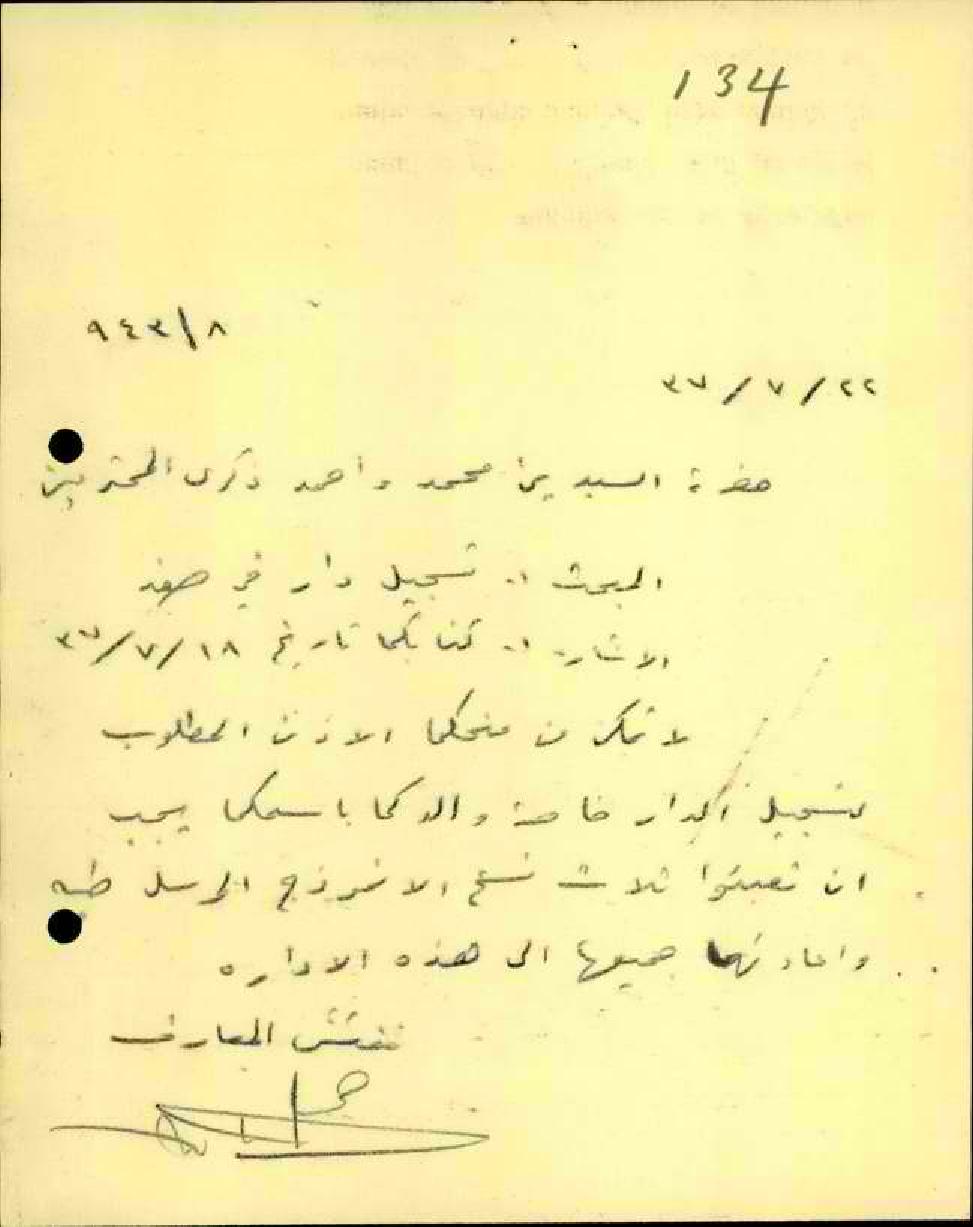 134
٩٤٣/٨
٢٢/٧/٣٧
حضرة السيدين محمد واحمد ذكرى المحترمين
المبحث :. تسجيل دار في صفد
الاشارة :. كتابكما تاريخ ١٨/٧/٣٧
لا نمكن من منحكما الاذن المطلوب
لتسجيل الدار خاصة والدكما باسمكما يجب
ان تعبئوا ثلاث نسخ الانموذج المرسل طيه
واعادتها جميعها الى هذه الاداره
مفتش المعارف